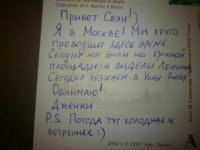 Cattedrale di S. Basilio il Beato
Привет Свэн!)
Я в Москве! Мы круто
проводим здесь время
Сегодня мы были на Красной
площади и видели Ленина
Сегодня уезжаем в Улан-Батор
Обнимаю!
Дженки
P.S. Погода тут холодная и
ветренная :)